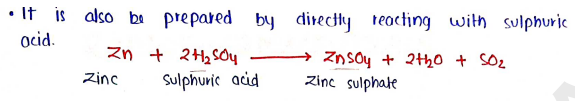 • It is also be prepared by directly reacting with sulphuric
acid.
Zn + 2H₂SO₄ ⟶ ZnSO₄ + 2H₂O + SO₂
Zinc Sulphuric acid Zinc sulphate